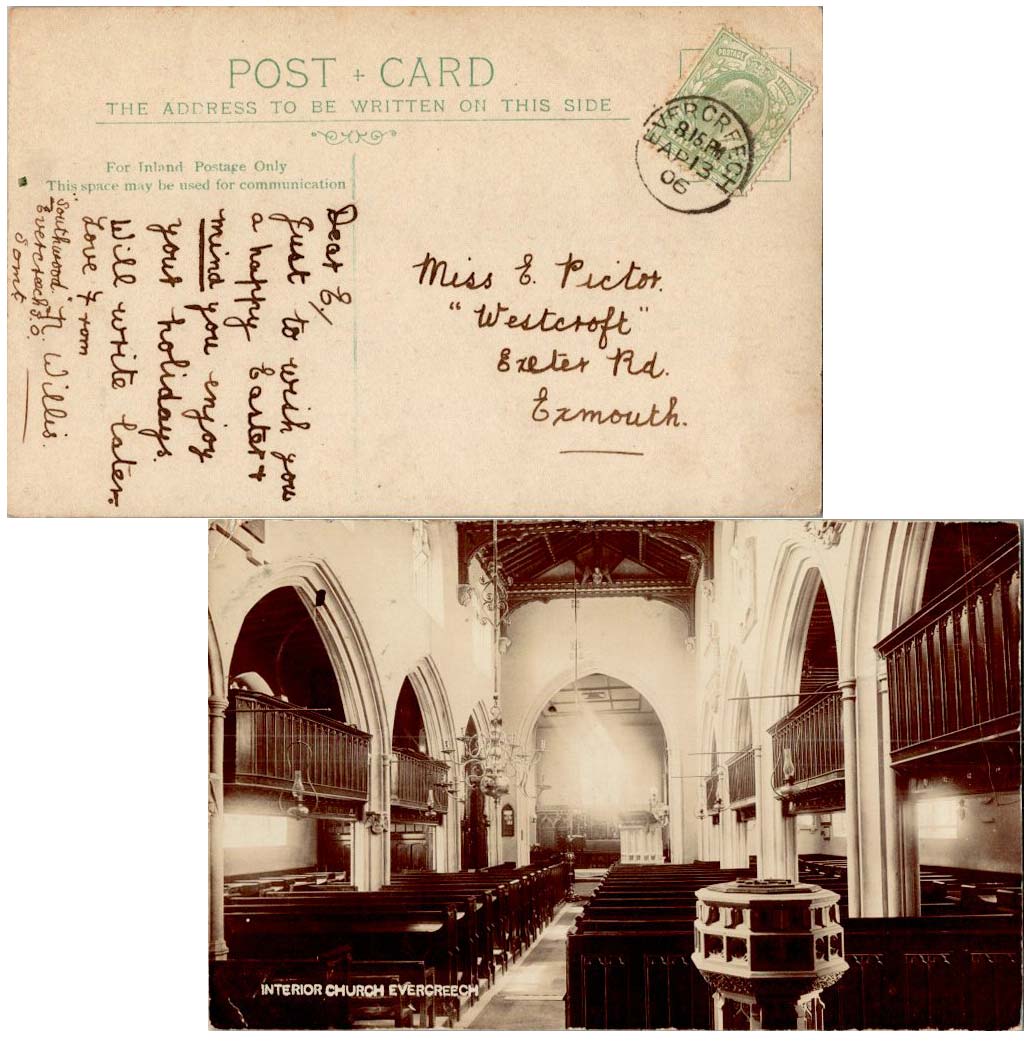 POST + CARD
THE ADDRESS TO BE WRITTEN ON THIS SIDE
For Inland Postage Only
This space may be used for communication
POSTAGE
EVERCREECH
8.15.PM
AP 13
06
Dear E/
Just to wish you
a happy Easter &
mind you enjoy
your holidays.
Will write later.
Love from
N. Willis.
"Southwood."
Evercreech
Somt
Miss E. Pictor.
"Westcroft"
Exeter Rd.
Exmouth.
INTERIOR CHURCH EVERCREECH